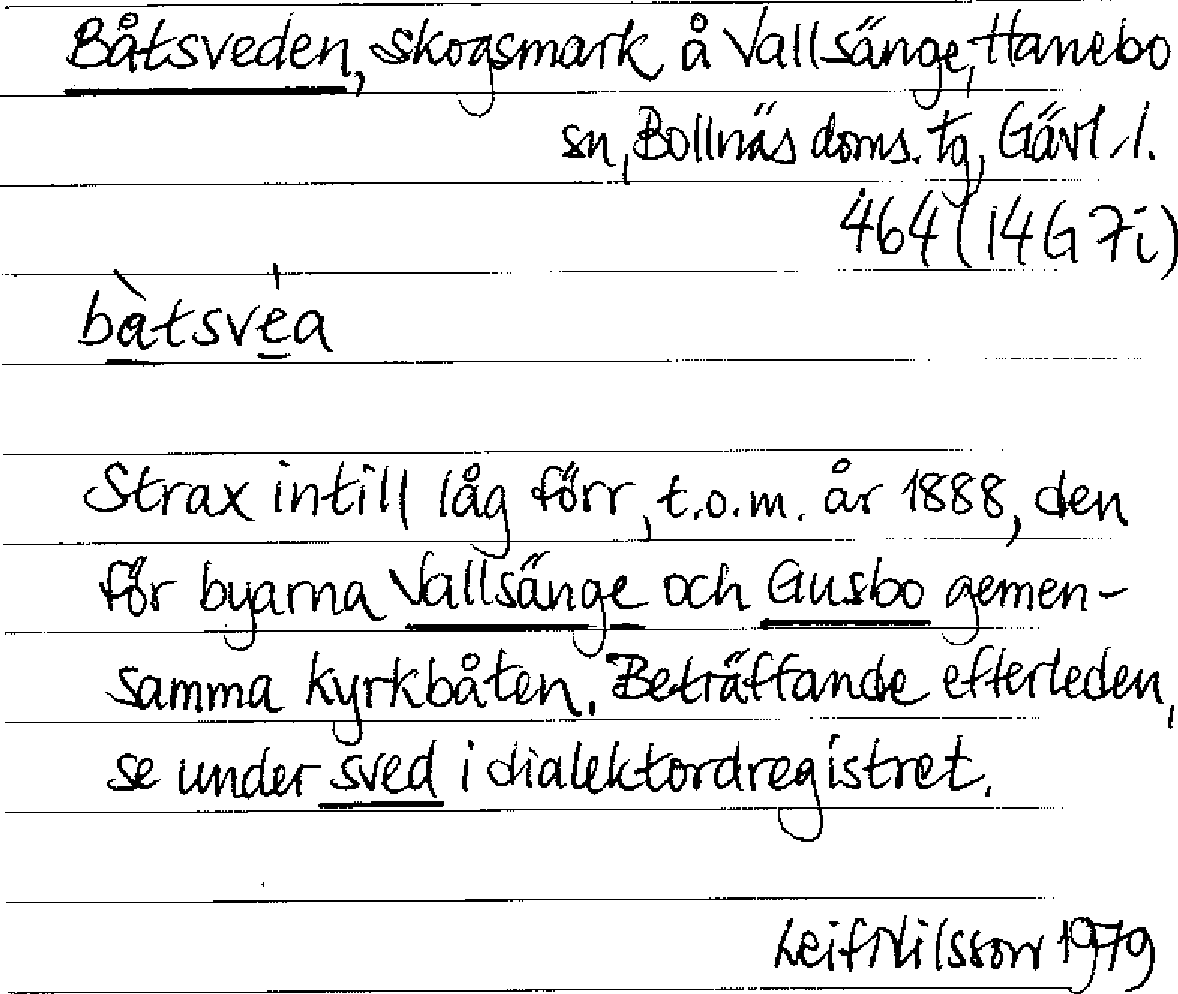 Båtsveden, skogsmark å Vallsänge, Hanebo
sn, Bollnäs doms. tg, Gävl. l.
464 (14G 7i)
bàtsvéa
Strax intill låg förr, t.o.m. år 1888, den
för byarna Vallsänge och Gusbo gemen-
samma kyrkbåten. Beträffande efterleden,
se under sved i dialektordregistret.
Leif Nilsson 1979